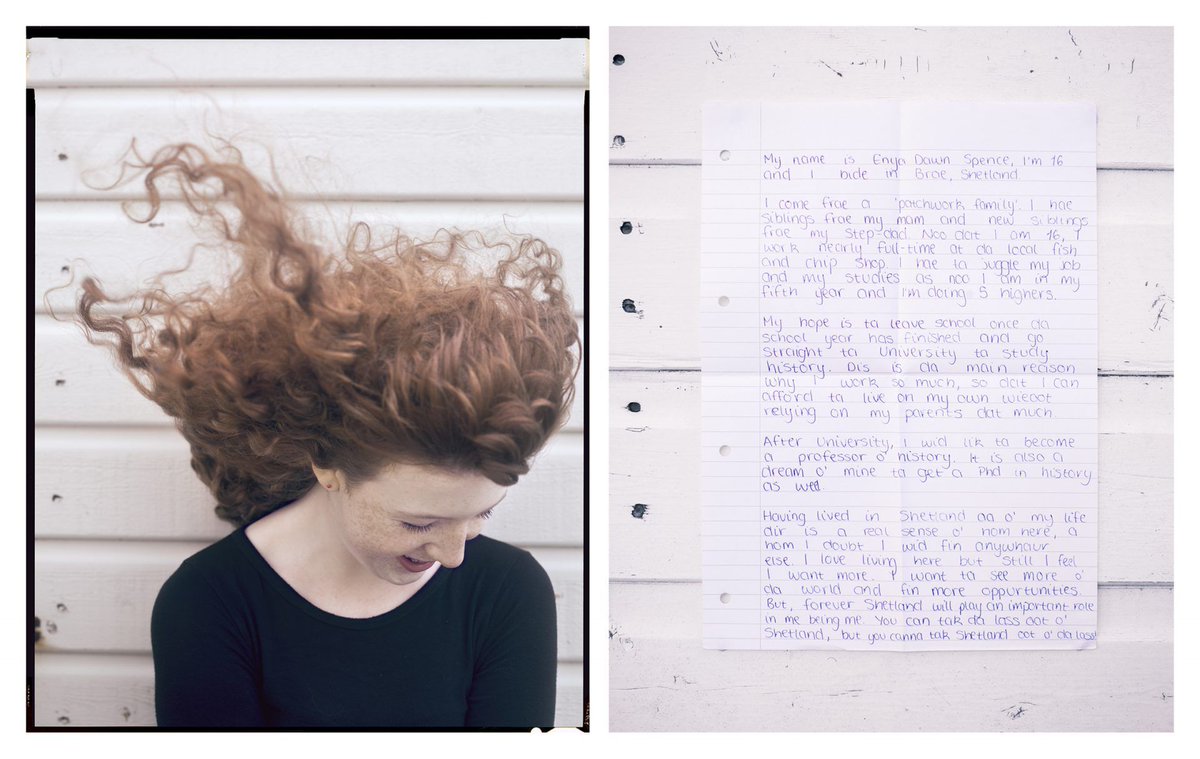 My name is Enya Dawn Spence, I'm
and I bide in Brae, Shetland
I come frae a 'patchwork family'. I hae
siblings frae my mam and new siblings
frae my step dad. Noo dat I am
work nearly full-time at da local fish
and chip shop. I hae ta juggle my job
and my studies as noo I am in my
fifth year and I'm doing 5 highers.
My hope is ta leave school once da
school year has finished and go
straight ta University ta study
history. Dis is da main reason
why I work so much, so dat I can
afford ta live on my own weoot
relying on my parents dat much.
After University, I wid lik ta become
a professor o' history. It is also a
dream o' mine ta get a Phd in history
as well.
Having lived in Shetland aa o' my life
dir is a real sense o' hom here, a
hom I doubt I wid fin anywhaur
else. I love living here but still I feel
I want more. I want to see more o'
da world and fin more opportunities.
But, forever Shetland will play an important role
in me being me. You can tak da lass oot o'
Shetland, but you canna tak Shetland oot o' da lass!